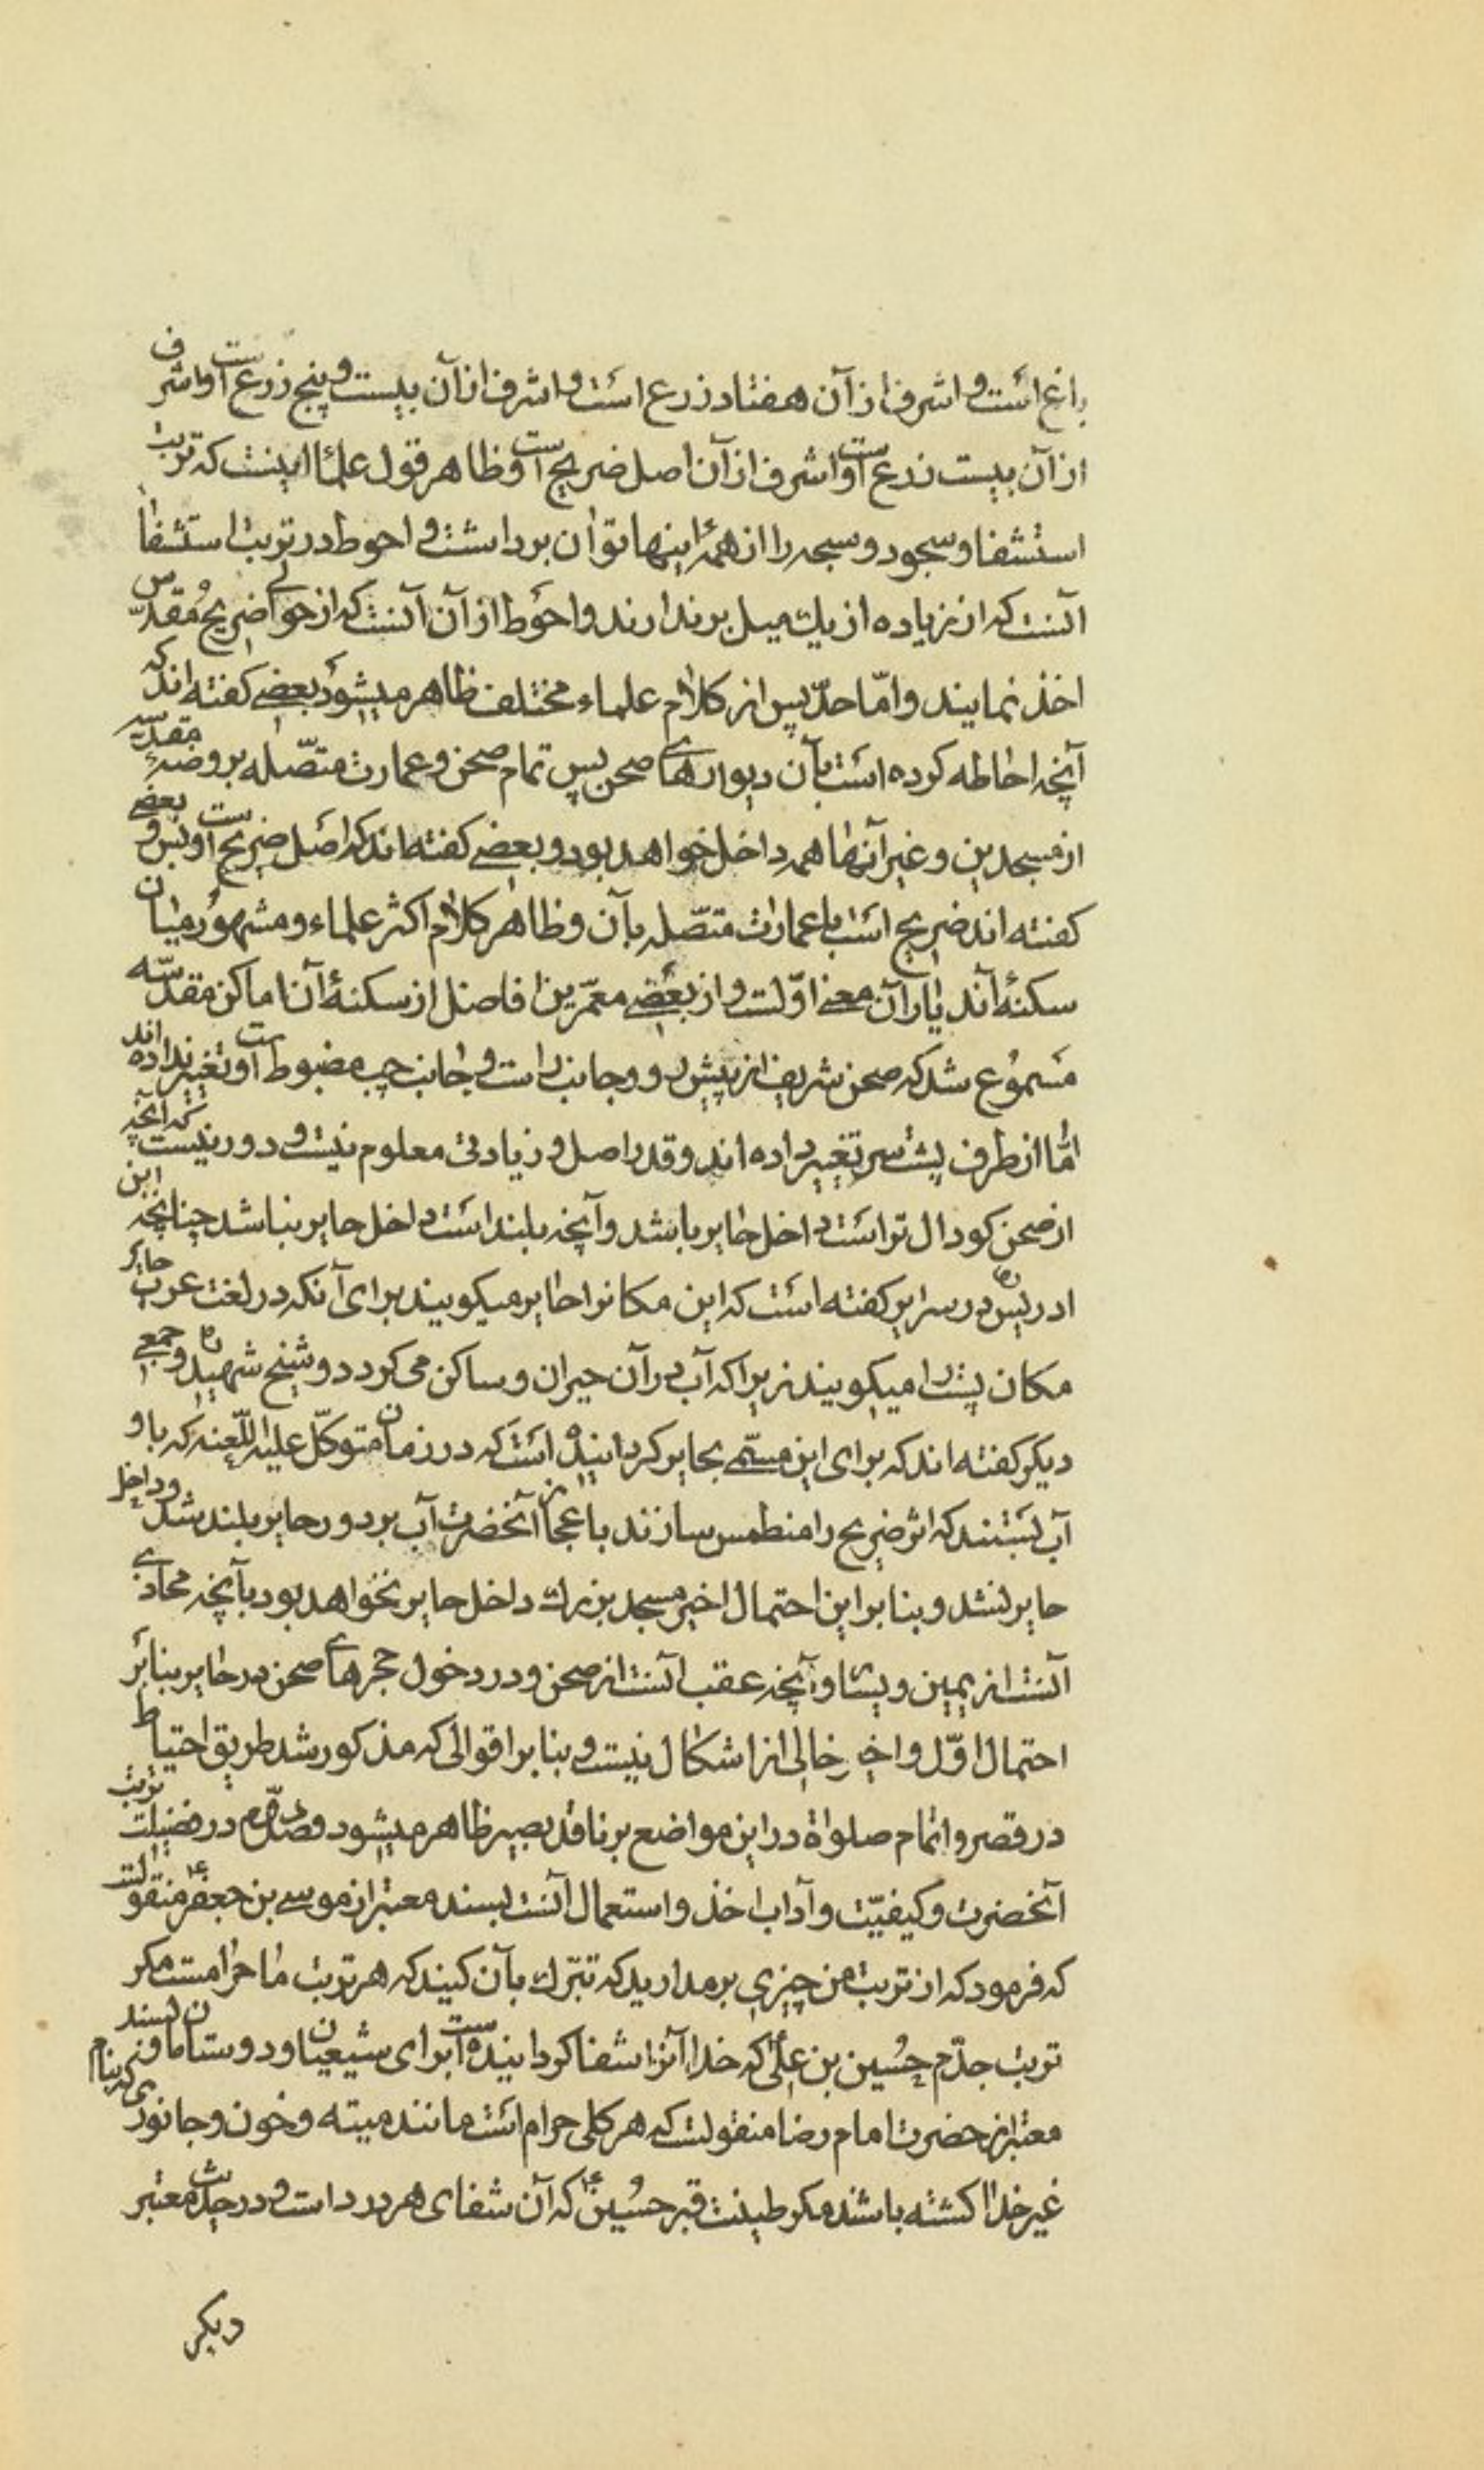 باغ است و اشرف از آن هفتاد ذرع است و اشرف از آن بیست و پنج ذرع است و اشرف
از آن بیست ذرع است و اشرف از آن اصل ضریح است و ظاهر قول علما اینست که تربت
استشفا و سجود و سبحه را از همهٔ اینها توان برداشت و احوط در تربت استشفا
آنست که از زیاده از یک میل برندارند و احوط از آن آنست که از حوالی ضریح مقدّس
اخذ نمایند و امّا حدّ پس از کلام علماء مختلف ظاهر میشود بعضی کفته اند که
آنچه احاطه کرده است بآن دیوارهای صحن پس تمام صحن و عمارت متّصله بروضهٔ مقدسه
از مسجدین و غیر آنها همه داخل خواهد بود و بعضی کفته اند که اصل ضریح است و بس و بعضی
کفته اند ضریح است با عمارات متصّله بآن و ظاهر کلام اکثر علماء و مشهور میان
سکنهٔ آن دیار آن معنی اوّلست و از بعضی معمّرین افاضل از سکنهٔ آن اماکن مقدّسه
مسموع شد که صحن شریف از پیش رو و جانب راست و جانب چپ مضبوط است و تغییر نداده اند
امّا از طرف پشت سر تغییر داده اند و قدر اصل و زیادتی معلوم نیست و دور نیست که آنچه
از صحن کودال تر است داخل حایر باشد و آنچه بلند است داخل حایر نباشد چنانچه ابن
ادریس ره در سرایر کفته است که این مکانرا حایر میکویند برای آنکه در لغت عرب حایر
مکان پست را میکویند زیرا که آب در آن حیران و ساکن می کردد و شیخ شهید ره و جمعی
دیکر کفته اند که برای این مسمّی بحایر کردانیده است که در زمان متوکّل علیه اللّعنه که باو
آب بستند که اثر ضریح را منطمس سازند باعجاز آنحضرت آب بر دور حایر بلند شد و داخل
حایر نشد و بنا بر این احتمال اخیر مسجد بزرك داخل حایر نخواهد بود بآنچه محاذی
آنست از یمین و یسار و آنچه عقب آنست از صحن و در دخول حجرهای صحن در حایر بنا بر
احتمال اوّل و اخیر خالی از اشکال نیست و بنا بر اقوالی که مذکور شد طریق احتیاط
در قصر و اتمام صلواة در این مواضع بر ناقد بصیر ظاهر میشود فصل دوّم در فضیلت تربت
آنحضرت و کیفیّت و آداب اخذ و استعمال آنست بسند معتبر از موسی بن جعفر ع منقولست
که فرمود که از تربت من چیزی برمدارید که تبرّك بآن کنید که هر تربت ما حرامست مکر
تربت جدّم حسین بن علی ع که خدا آنرا شفا کردانیده است برای شیعیان و دوستان ما و بسند
معتبر از حضرت امام رضا منقولست که هر کلی حرام است مانند میته و خون و جانوری که بنام
غیر خدا کشته باشند مکر طینت قبر حسین ع که آن شفای هر درد است و در حدیث معتبر
دیکر